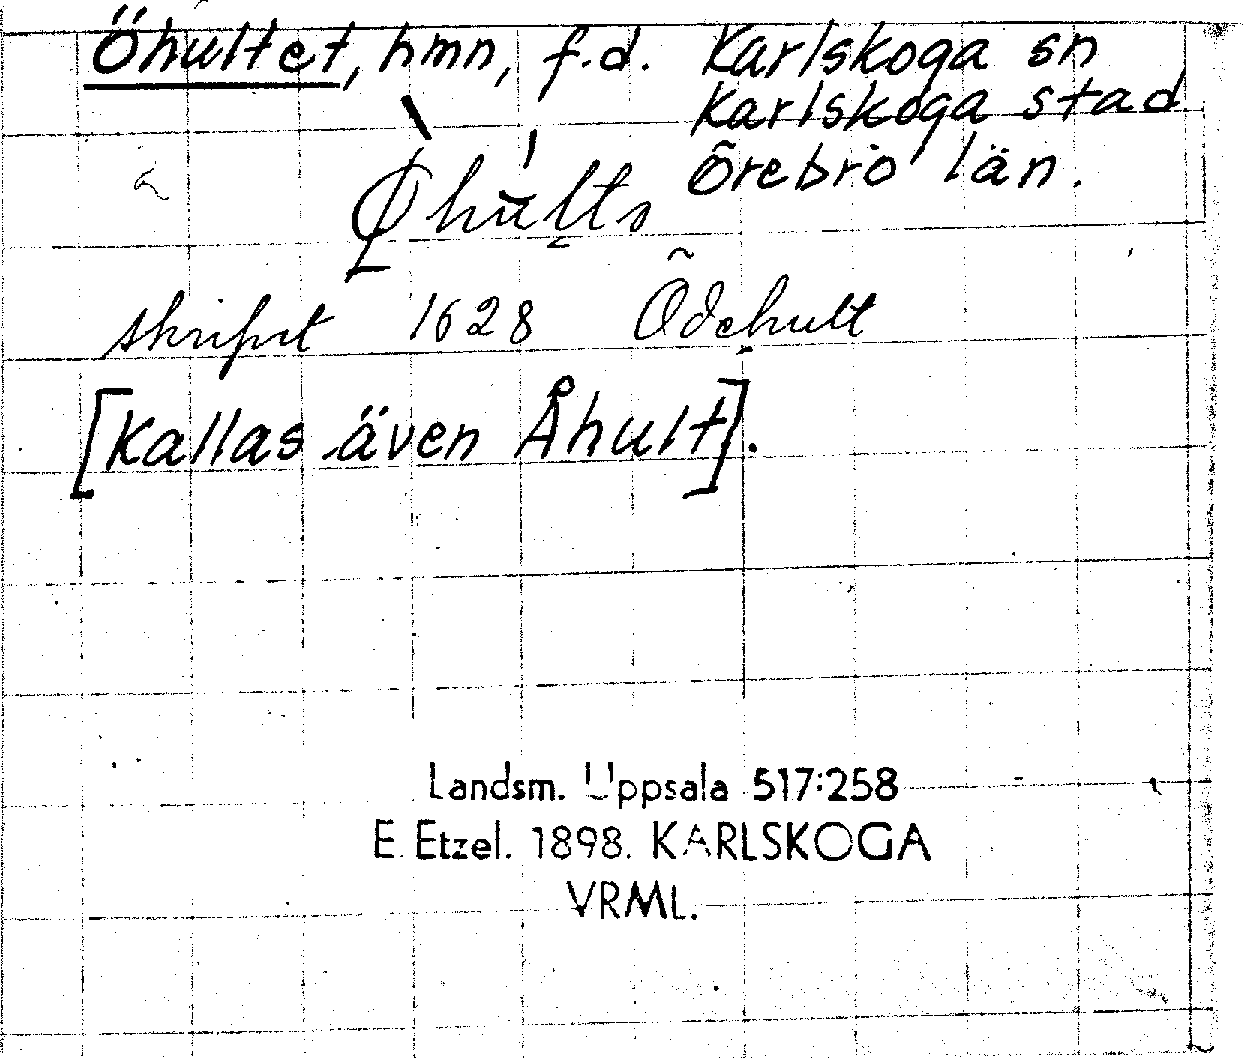 Öhultet, hmn, f.d. Karlskoga sn
Karlskoga stad
Örebro län.
skrifvit 1628 Ödehult
[Kallas även Åhult].
Landsm. Uppsala 517:258
E. Etzel. 1898. KARLSKOGA
VRML.